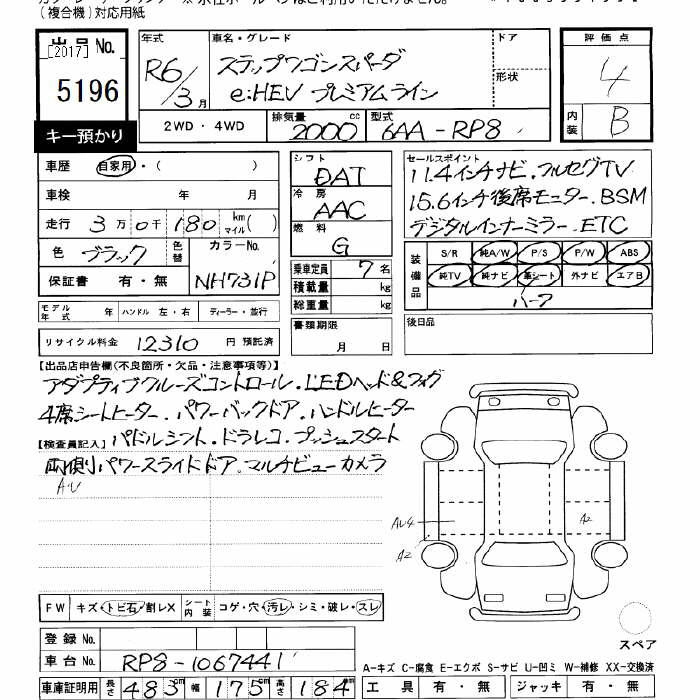 (複合機)対応用紙
出品No.
[2017]
5196
キー預かり
年式
R6/3月
車名・グレード
ステップワゴンスパーダ
e:HEV プレミアムライン
ドア
形状
2WD・4WD
排気量
2000 cc
型式
6AA-RP8
評価点
4
内装
B
車歴 自家用・( )
車検 年 月
走行 3万0千180 km マイル( )
色 ブラック 色替 カラーNo.
NH731P
保証書 有・無
シフト
DAT
冷房
AAC
燃料
G
乗車定員 7名
積載量 kg
総重量 kg
書類期限
月 日
セールスポイント
11.4インチナビ.フルセグTV
15.6インチ後席モニター.BSM
デジタルインナーミラー.ETC
装備品
S/R 純A/W P/S P/W ABS
純TV 純ナビ 革シート 外ナビ エアB
ハーフ
後日品
モデル年式 年 ハンドル 左・右 ディーラー・並行
リサイクル料金 12310 円 預託済
【出品店申告欄(不良箇所・欠品・注意事項等)】
アダプティブクルーズコントロール.LEDヘッド&フォグ
4席シートヒーター.パワーバックドア.ハンドルヒーター
【検査員記入】パドルシフト.ドラレコ.プッシュスタート
両側パワースライドドア.マルチビューカメラ
AU
AU4
A2
A2
FW キズ・トビ石・割レX シート内装 コゲ・穴・汚レ・シミ・破レ・スレ
登録No.
車台No. RP8-1067441
車庫証明用 長さ 483cm 幅 175cm 高さ 184cm
スペア
A-キズ C-腐食 E-エクボ S-サビ U-凹ミ W-補修 XX-交換済
工具 有・無 ジャッキ 有・無